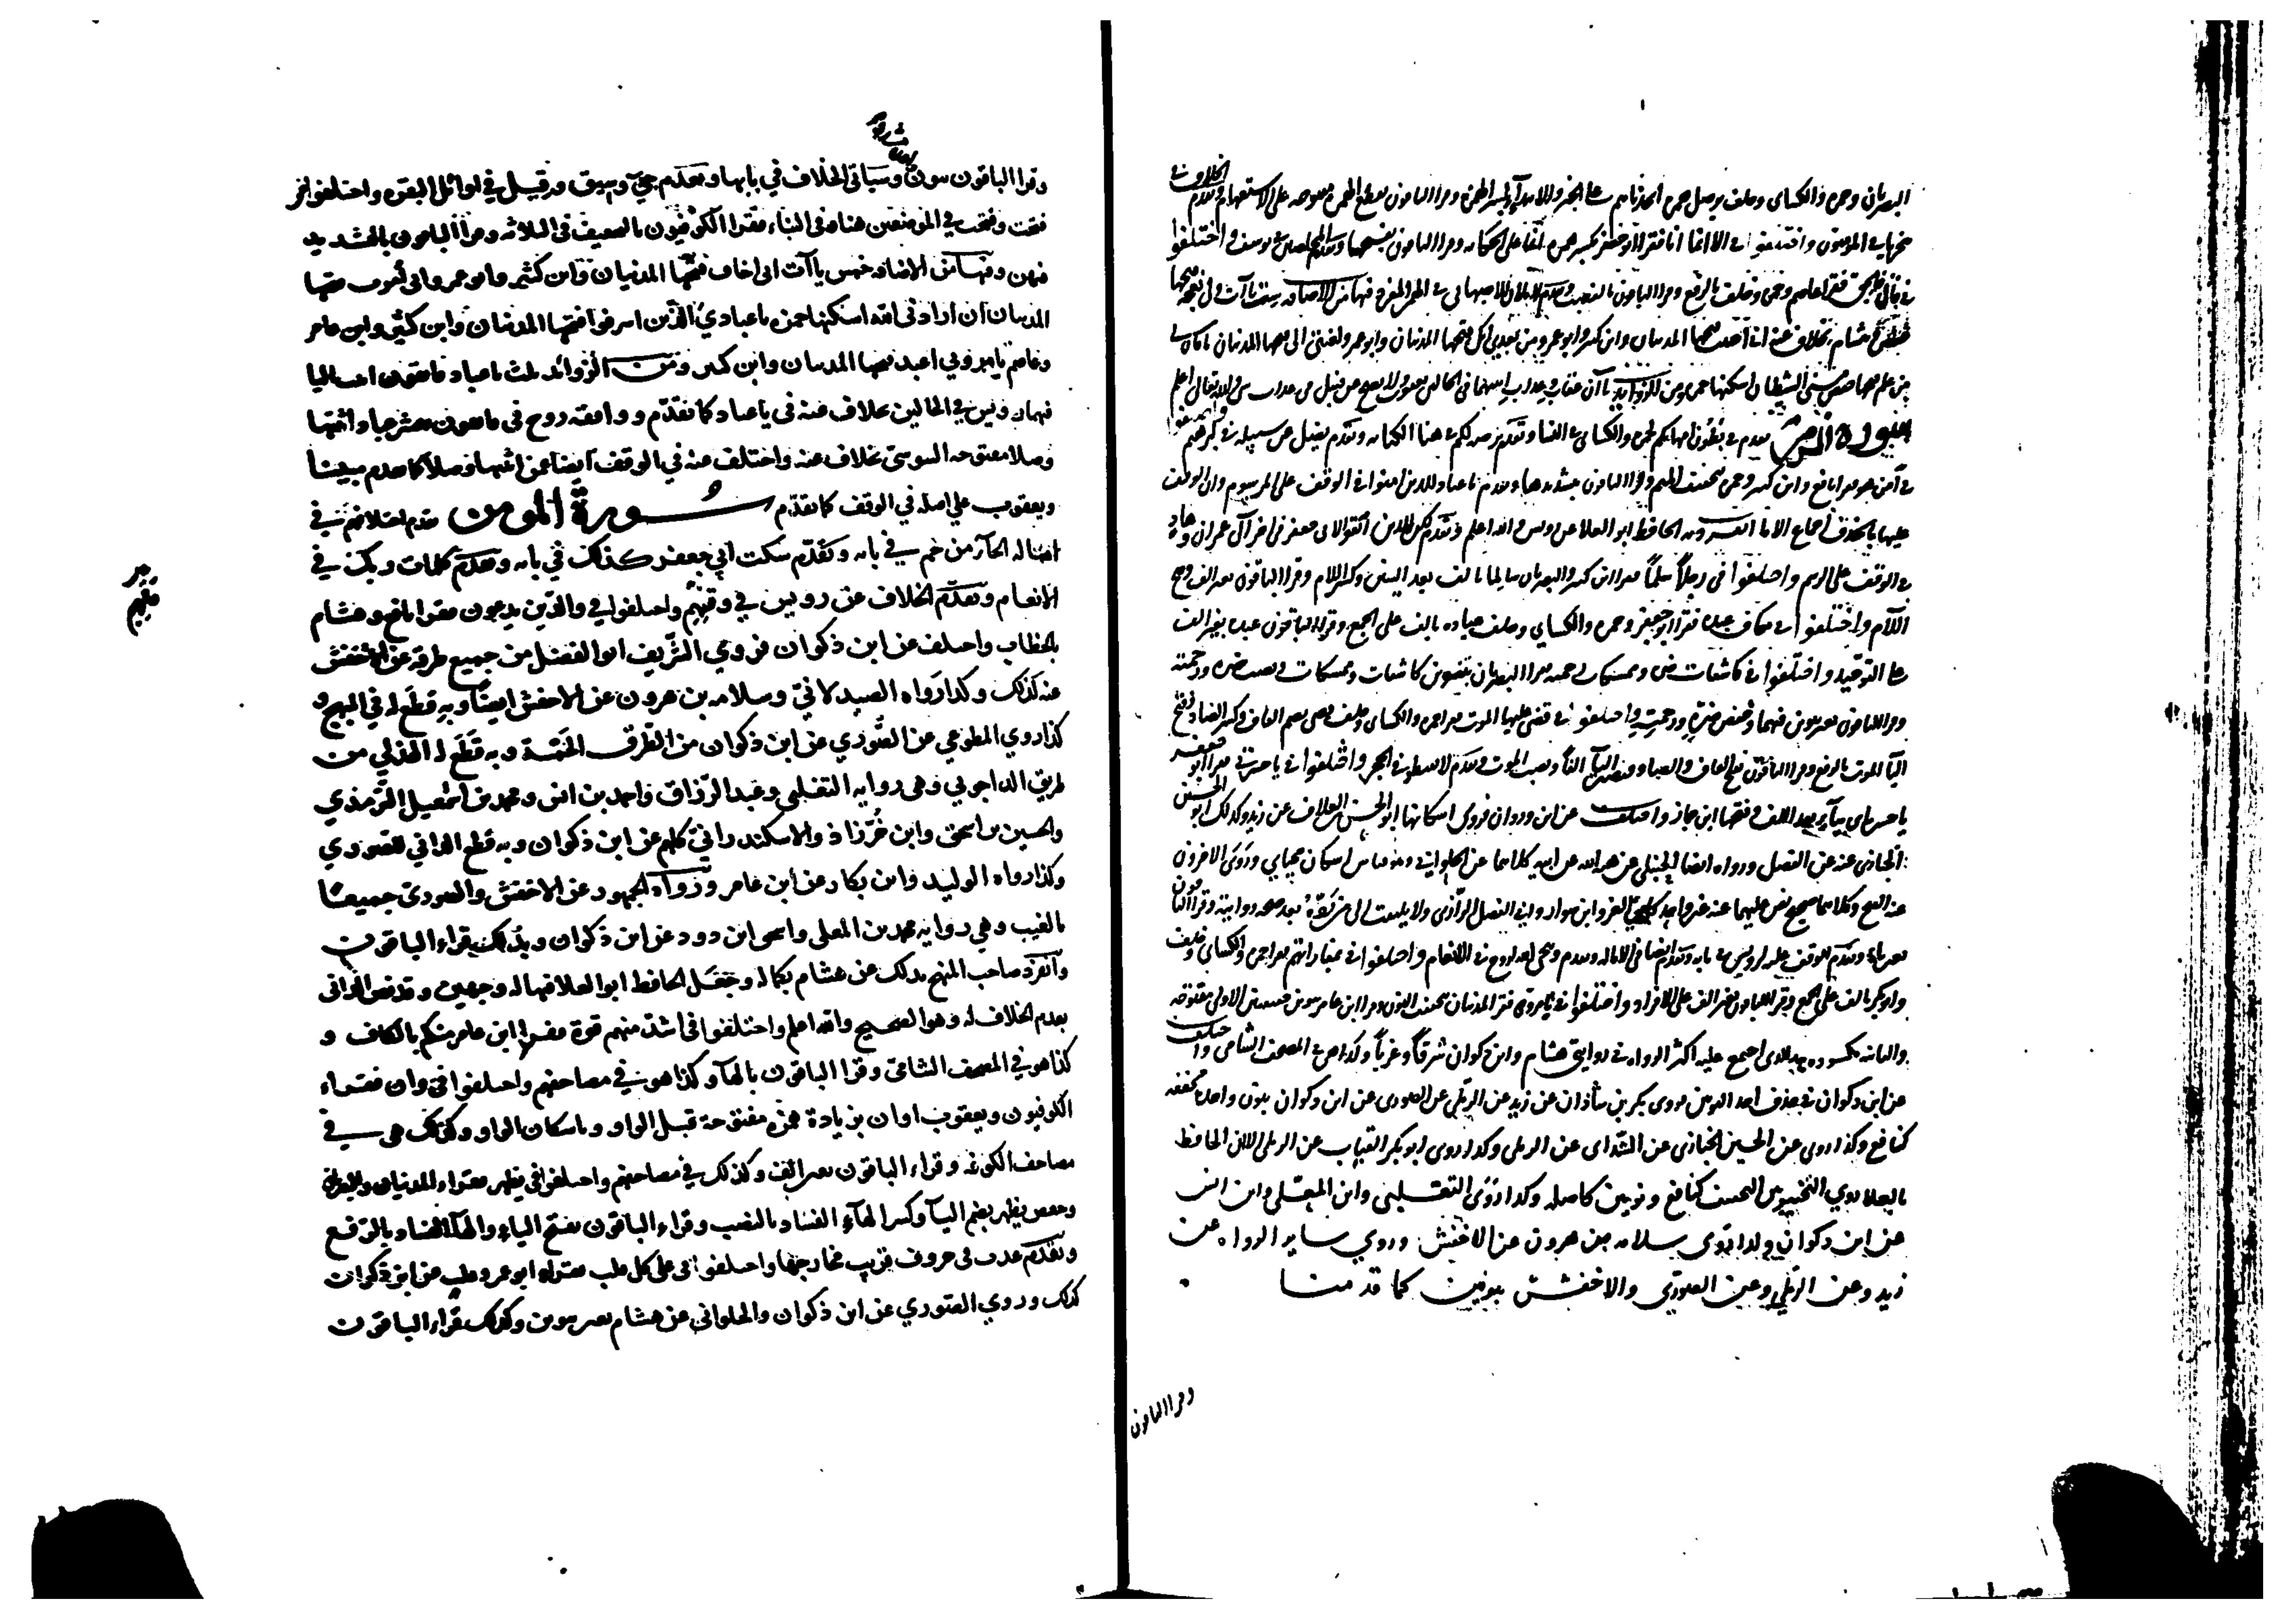 البصريان وحمزة والكسائي وخلف بوصل همزة اتخذناهم على الخبر والابتداء بكسر الهمزة وقرا الباقون بقطع الهمزة مفتوحة على الاستفهام وتقدم الخلاف في
سخريا في المومنون واختلفوا في الا انما انا فقرا ابو جعفر بكسر همزة انما على الحكاية وقرا الباقون بفتحها وتقدم المخلصين في يوسف واختلفوا
في قال فالحق فقرا عاصم وحمزة وخلف بالرفع وقرا الباقون بالنصب وتقدم لاملان للاصبهاني في الهمز المفرد وفيها من الاضافة ست ياآت ولي نعجة فتحها
حفص وهشام بخلاف عنه اني احببت فتحها المدنيان وابن كثير وابو عمرو من بعدي انك فتحها المدنيان وابو عمرو لعنتي الى فتحها المدنيان ما كان لي
من علم فتحها حفص مسني الشيطان اسكنها حمزة ومن الزوايد ياآن عقاب وعذاب اثبتهما في الحالين يعقوب ولا يصح عن قنبل في عذاب شي والله تعالى اعلم
سورة الزمر تقدم في بطون امهاتكم لحمزة والكسائي في النسا وتقدم يرضه لكم في هنا الكناية وتقدم ليضل عن سبيله في ابرهيم واختلفوا
في امن هو فقرا نافع وابن كثير وحمزة بتخفيف الميم وقرا الباقون بتشديدها وتقدم يا عباد الذين امنوا في الوقف على المرسوم وان الوقف
عليها بالحذف اجماع الا ما انفرد به الحافظ ابو العلا عن رويس والله اعلم وتقدم لكن الذين اتقوا لابي جعفر في اخر آل عمران وهاد
في الوقف على الرسم واختلفوا في رجلا سلما فقرا ابن كثير والبصريان سالما بالف بعد السين وكسر اللام وقرا الباقون بغير الف وفتح
اللام واختلفوا في بكاف عبده فقرا ابو جعفر وحمزة والكسائي وخلف عباده بالف على الجمع وقرا الباقون عبده بغير الف
على التوحيد واختلفوا في كاشفات ضره وممسكات رحمته فقرا البصريان بتنوين كاشفات وممسكات ونصب ضره ورحمته
وقرا الباقون بغير تنوين فيهما وخفض ضره ورحمته واختلفوا في قضى عليها الموت فقرا حمزة والكسائي وخلف قضي بضم القاف وكسر الضاد وفتح
اليا الموت بالرفع وقرا الباقون بفتح القاف والضاد فتصير اليا الفا ونصب الموت وتقدم لا تقنطوا في الحجر واختلفوا في يا حسرتى فقرا ابو جعفر
يا حسرتاي بياء بعد الالف وفتحها ابن جماز واختلف عن ابن وردان فروى اسكانها ابو الحسن بن العلاف عن زيد وكذلك ابو الحسن
الخبازي عنه عن الفضل ورواه ايضا الحنبلي عن هبة الله عن ابيه كلاهما عن الحلواني وهو قياس اسكان محياي وروى الاخرون
عنه الفتح وكلاهما صحيح نص عليهما عنه غير واحد كابي العز وابن سوار وابي الفضل الرازي ولا يلتفت الى من رده بعد صحة روايته وقرا الباقون
بغير ياء وتقدم الوقف عليه لرويس في بابه وتقدم ايضا في الامالة وتقدم وينجي الله لروح في الانعام واختلفوا في بمفازاتهم فقرا حمزة والكسائي وخلف
وابو بكر بالف على الجمع وقرا الباقون بغير الف على الافراد واختلفوا في تامروني فقرا المدنيان بتخفيف النون وقرا ابن عامر بنونين خفيفتين الاولى مفتوحة
والثانية مكسورة هذا الذي اجمع عليه اكثر الرواة في روايتي هشام وابن ذكوان شرقا وغربا وكذا هي في المصحف الشامي واختلف
عن ابن ذكوان في حذف احد النونين فروى بكر بن شاذان عن زيد عن الرملي عن الصوري عن ابن ذكوان بنون واحدة مخففة
كنافع وكذا روى عن الحسين الخبازي عن الشذاي عن الرملي وكذا روى ابو بكر القباب عن الرملي الا ان الحافظ
ابا العلا روى التخيير بين التخفيف كنافع ونونين كاصله وكذا روى التغلبي وابن المعلى وابن انس
عن ابن ذكوان وكذا روى سلامة بن هرون عن الاخفش وروي ساير الرواه عن
زيد وعن الرملي وعن الصوري والاخفش بنونين كما قدمنا
وقرا الباقون
وقرا الباقون بنون مشددة وسياتي الخلاف في بابها وتقدم جيء وسيق وقيل في اوائل البقرة واختلفوا في
فتحت وفتحت في الموضعين هنا وفي النباء فقرا الكوفيون بالتخفيف في الثلاثة وقرا الباقون بالتشديد
فيهن وفيها من الاضافه خمس ياآت اني اخاف فتحها المدنيان وابن كثير وابو عمرو اني امرت فتحها
المدنيان ان ارادني الله اسكنها حمزة يا عبادي الذين اسرفوا فتحها المدنيان وابن كثير وابن عامر
وعاصم تامروني اعبد فتحها المدنيان وابن كثير ومن الزوائد ثلث يا عباد فاتقون اثبت اليا
فيهما رويس في الحالين بخلاف عنه في يا عباد كما تقدم ووافقه روح في فاتقون فبشر عباد اثبتها
وصلا مفتوحه السوسي بخلاف عنه واختلف عنه في الوقف ايضا عمن اثبتها وصلا كما تقدم مبينا
ويعقوب على اصله في الوقف كما تقدم سورة المومن تقدم اختلافهم في
امالة الحاء من حم في بابه وتقدم سكت ابي جعفر كذلك في بابه وتقدم كلمات ربك في
الانعام وتقدم الخلاف عن رويس في وقهم واختلفوا في والذين يدعون فقرا نافع وهشام
بالخطاب واختلف عن ابن ذكوان فروي الشريف ابو الفضل من جميع طرقه عن الاخفش
عنه كذلك وكذا رواه الصيدلاني وسلامه بن هرون عن الاخفش ايضا وبه قطع له في المبهج و
كذا روي المطوعي عن الصوري عن ابن ذكوان من الطرق الخمسة وبه قطع له الهذلي من
طريق الداجوني وهي رواية التغلبي وعبد الرزاق واحمد بن انس ومحمد بن اسمعيل الترمذي
والحسين بن اسحق وابن خرزاذ والاسكندراني كلهم عن ابن ذكوان وبه قطع الداني للصوري
وكذا رواه الوليد وابن بكار عن ابن عامر ورواه الجمهور عن الاخفش والصوري جميعا
بالغيب وهي رواية محمد بن المعلى واسحق ابن دود عن ابن ذكوان وبذلك قراء الباقون
وانفرد صاحب المبهج بذلك عن هشام بكماله وجعل الحافظ ابو العلا فيها له وجهين وقد نص الداني
بعدم الخلاف له وهو الصحيح والله اعلم واختلفوا في اشد منهم قوة فقرا ابن عامر منكم بالكاف و
كذا هو في المصحف الشامي وقرا الباقون بالهاء وكذا هو في مصاحفهم واختلفوا في وان فقراء
الكوفيون ويعقوب او ان بزيادة همزة مفتوحة قبل الواو واسكان الواو وكذلك هي في
مصاحف الكوفه وقراء الباقون بغير الف وكذلك في مصاحفهم واختلفوا في يظهر فقراء المدنيان والبصريان
وحفص يظهر بضم الياء وكسر الهاء الفساد بالنصب وقراء الباقون بفتح الياء والهاء الفساد بالرفع
وتقدم عدت في حروف قربت مخارجها واختلفوا في على كل قلب فقراء ابو عمرو قلب عن ابن ذكوان
كذلك وروي الصوري عن ابن ذكوان والحلواني عن هشام بغير تنوين وكذلك قراء الباقون